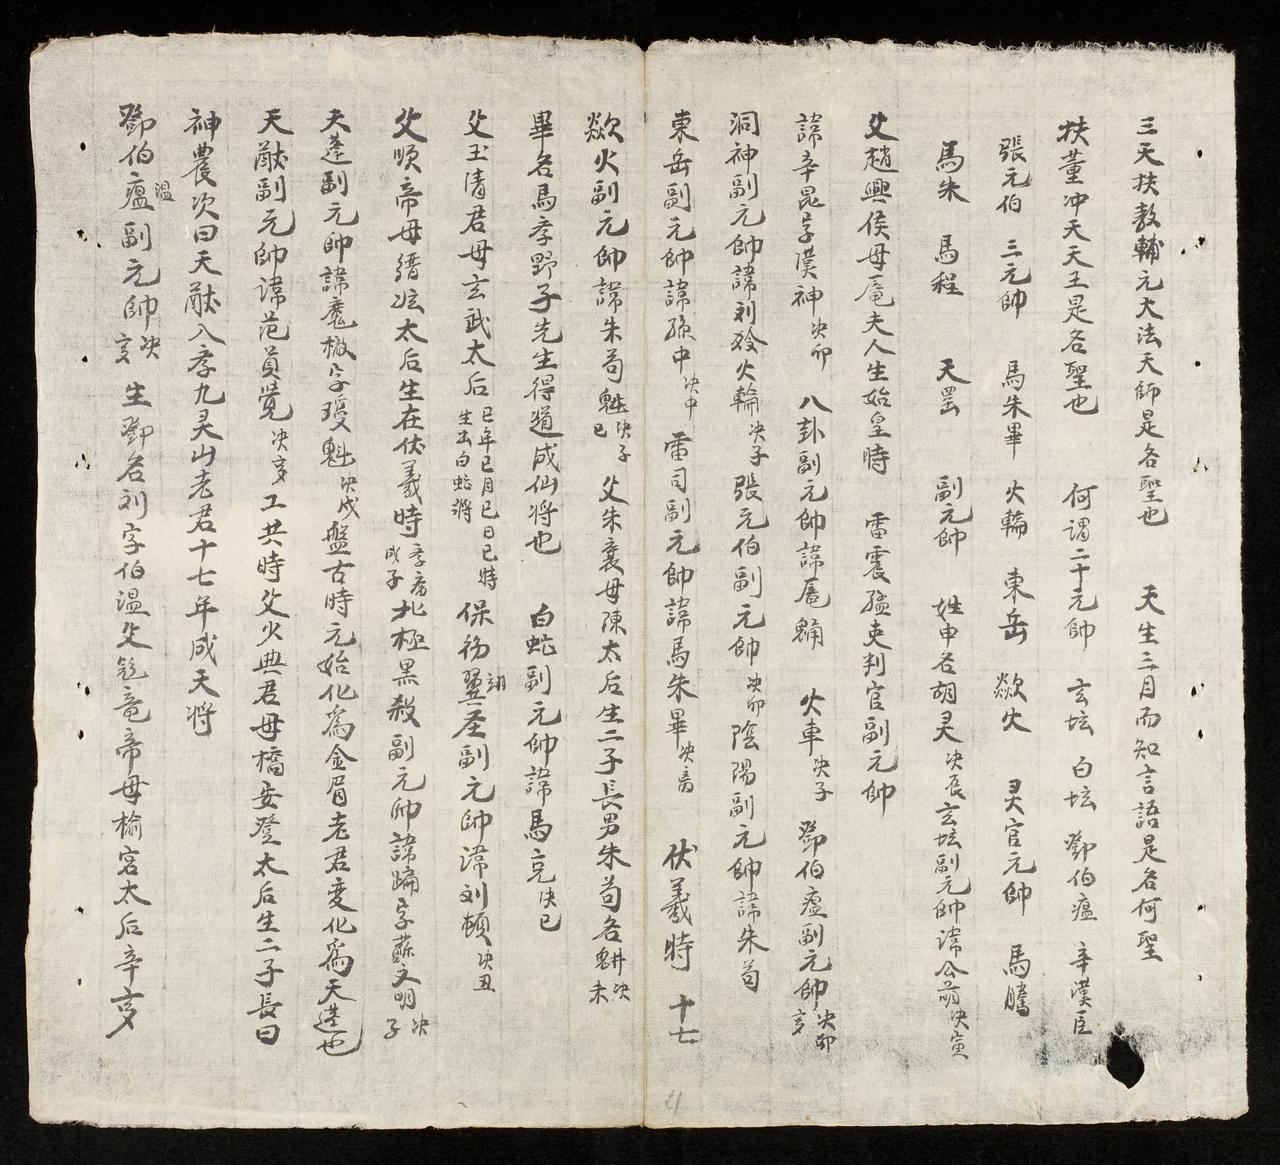 三天扶教輔元大法天師是各聖也 天生三月而知言語是名何聖
扶董冲天天王是各聖也 何謂二十元帥 玄坛 白坛 鄧伯瘟 辛漢臣
張元伯 三元帥 馬朱畢 火輪 東岳 歘火 灵官元帥 馬騰
馬朱 馬程 天罡 副元帥 姓申名胡灵决辰玄坛副元帥諱公萌决寅
父趙興侯母毫夫人生始皇時 雷震猛吏判官副元帥
諱辛昆字漢神决卯 八卦副元帥諱毫 火車决子 鄧伯瘟副元帥决卯亥
洞神副元帥諱利狢火輪决子張元伯副元帥决卯陰陽副元帥諱朱苟
東岳副元帥諱孫中决中 雷司副元帥諱馬朱畢决斋 伏羲時 十七
歘火副元帥諱朱苟魁决子巳 父朱襄母陳太后生二子長男朱苟名魁决未
畢名馬孛野子先生得道成仙将也 白蛇副元帥諱馬充决巳
父玉清君母玄武太后巳年巳月巳日巳時生出白蛇將 保彻翼翊圣副元帥諱刘頓决丑
父順帝母縉炫太后生在伏羲時季斋戌子北極黑殺副元帥諱蹁字蘇文明决子
天蓬副元帥諱魔檄字瓊魁决戍盤古時元始化爲金眉老君变化爲天莲也
天猷副元帥諱范員覺决亥工共時父火典君母橋安登太后生二子長曰
神農次曰天猷入孝九灵山老君十七年成天将
鄧伯瘟温副元帥决亥 生鄧名刘字伯温父 竜帝母榆宮太后辛亥
4